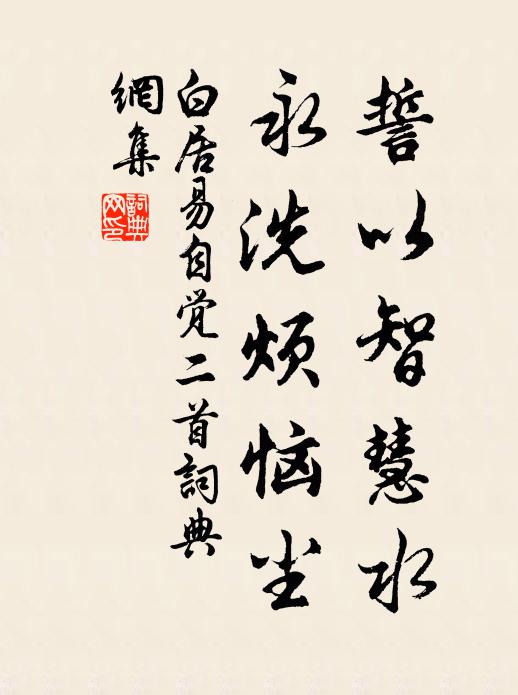 誓以智慧水
永洗烦恼尘
白居易自觉二首詞典
網集
詞典
网印